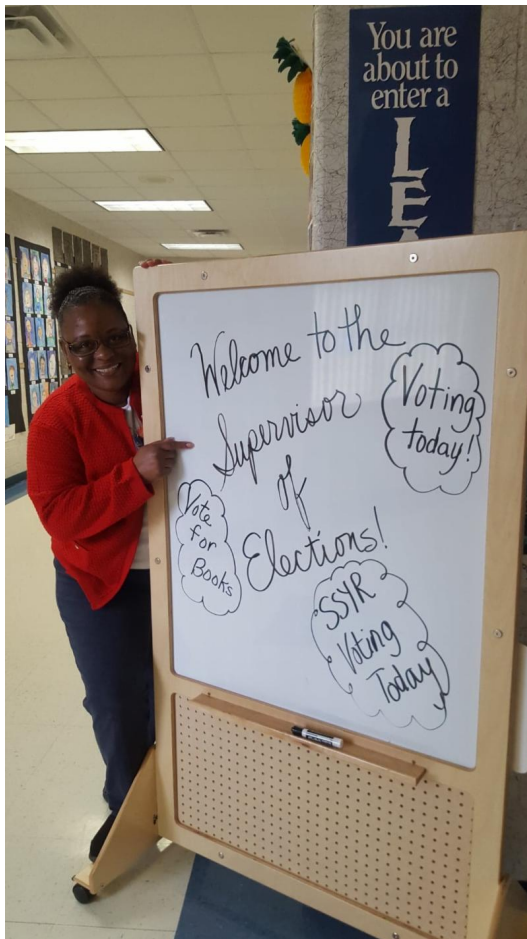 You are
about to
enter a
LEA
Welcome to the
Supervisor
of
Elections!
Voting
today!
Vote
for
Books
SSYR
Voting
Today